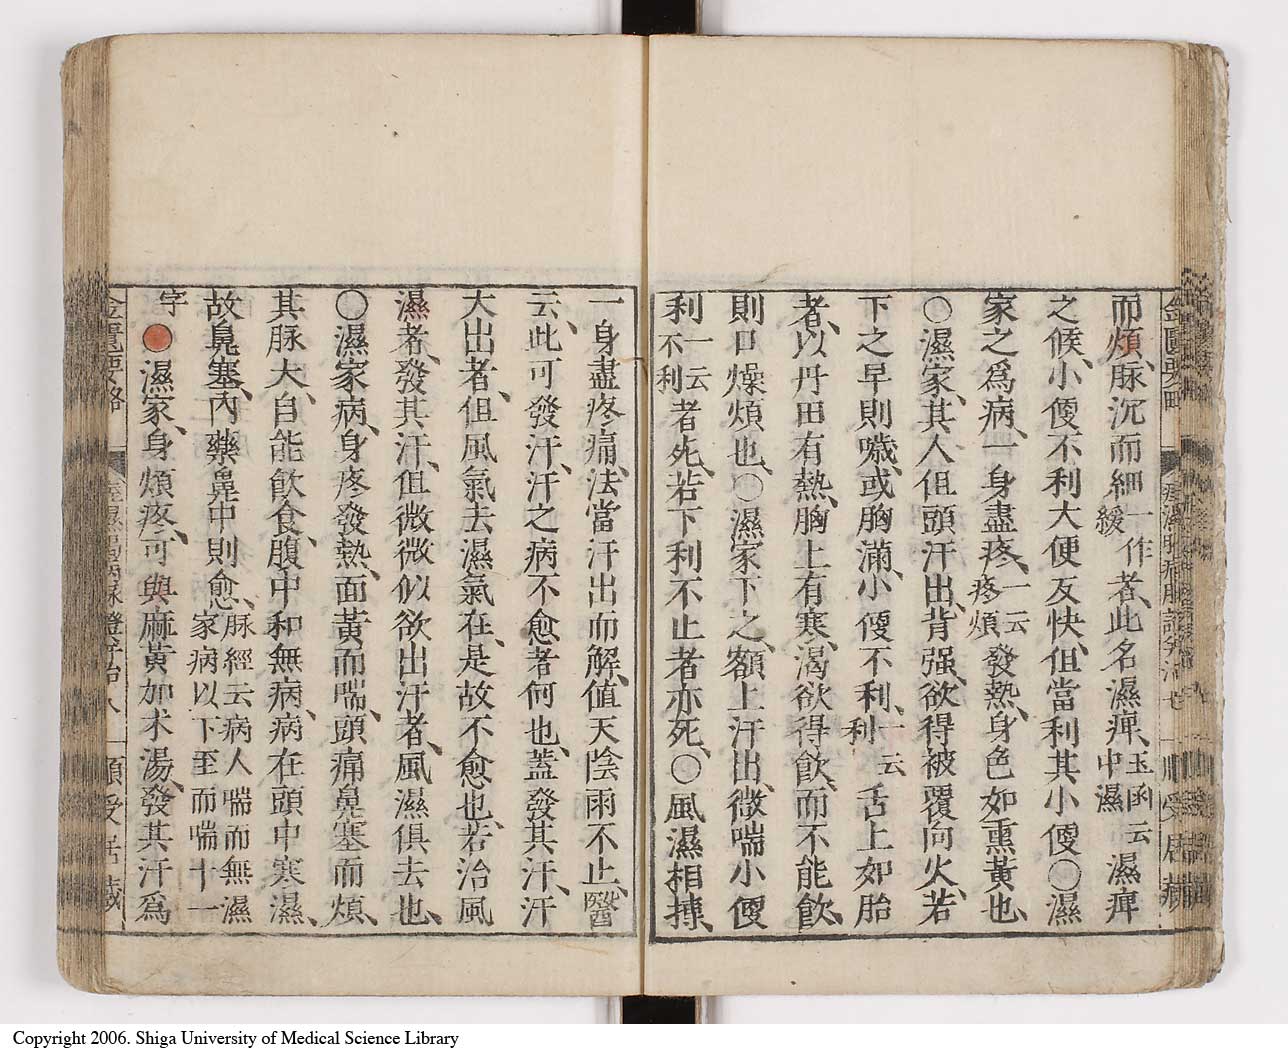 金匱要略
而煩、脉沉而細一作緩者、此名濕痺、玉函云中濕濕痺
之候、小便不利大便反快、但當利其小便○濕
家之爲病、一身盡疼、一云疼煩發熱、身色如熏黃也
○濕家、其人但頭汗出、背强、欲得被覆向火、若
下之早則噦、或胸滿、小便不利、一云利舌上如胎
者、以丹田有熱、胸上有寒、渴欲得飮、而不能飮、
則口燥煩也、○濕家下之、額上汗出、微喘小便
利一云不利者死、若下利不止者亦死、○風濕相摶、
一身盡疼痛、法當汗出而解、值天陰雨不止、醫
云、此可發汗、汗之病不愈者何也、蓋發其汗、汗
大出者、但風氣去濕氣在、是故不愈也、若治風
濕者、發其汗、但微微似欲出汗者、風濕俱去也、
○濕家病、身疼發熱、面黃而喘、頭痛鼻塞而煩、
其脉大、自能飮食、腹中和無病、病在頭中寒濕、
故鼻塞、內藥鼻中則愈、脉經云病人喘而無濕家病以下至而喘十一
字○濕家、身煩疼、可與麻黃加朮湯、發其汗爲
金匱要略
Copyright 2006. Shiga University of Medical Science Library